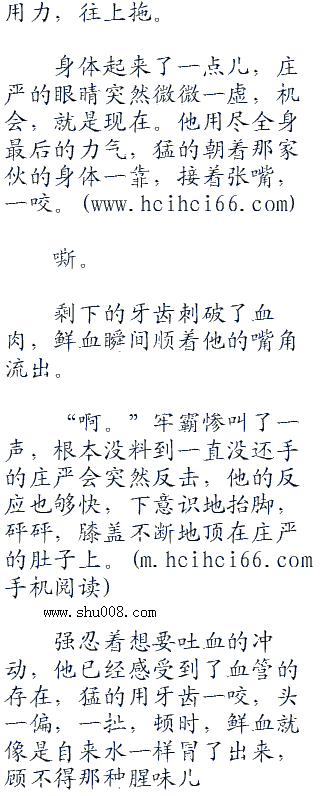 用力，往上拖。
身体起来了一点儿，庄
严的眼睛突然微微一虚，机
会，就是现在。他用尽全身
最后的力气，猛的朝着那家
伙的身体一靠，接着张嘴，
一咬。(www.hcihci66.com)
嘶。
剩下的牙齿刺破了血
肉，鲜血瞬间顺着他的嘴角
流出。
“啊。”牢霸惨叫了一
声，根本没料到一直没还手
的庄严会突然反击，他的反
应也够快，下意识地抬脚，
砰砰，膝盖不断地顶在庄严
的肚子上。(m.hcihci66.com
手机阅读)
www.shu008.com
强忍着想要吐血的冲
动，他已经感受到了血管的
存在，猛的用牙齿一咬，头
一偏，一扯，顿时，鲜血就
像是自来水一样冒了出来，
顾不得那种腥味儿